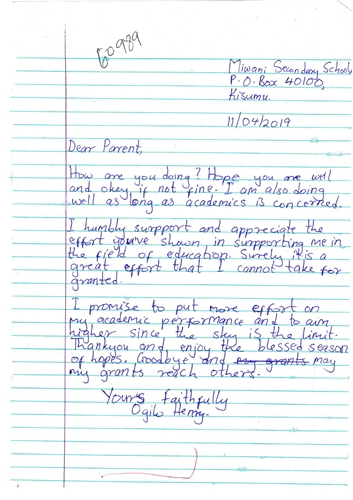 60989
Miwani Secondary School,
P.O. Box 40100,
Kisumu.
11/04/2019
Dear Parent,
How are you doing? Hope you are well
and okey if not fine. I am also doing
well as long as academics is concerned.
I humbly surpport and appreciate the
effort you've shown in surpporting me in
the field of education. Surely it is a
great effort that I cannot take for
granted.
I promise to put more effort on
my academic performance and to aim
higher since the sky is the limit.
Thankyou and enjoy the blessed season
of hopes. Goodbye and my grants may
my grants reach others.
Yours faithfully
Ogilo Henry.